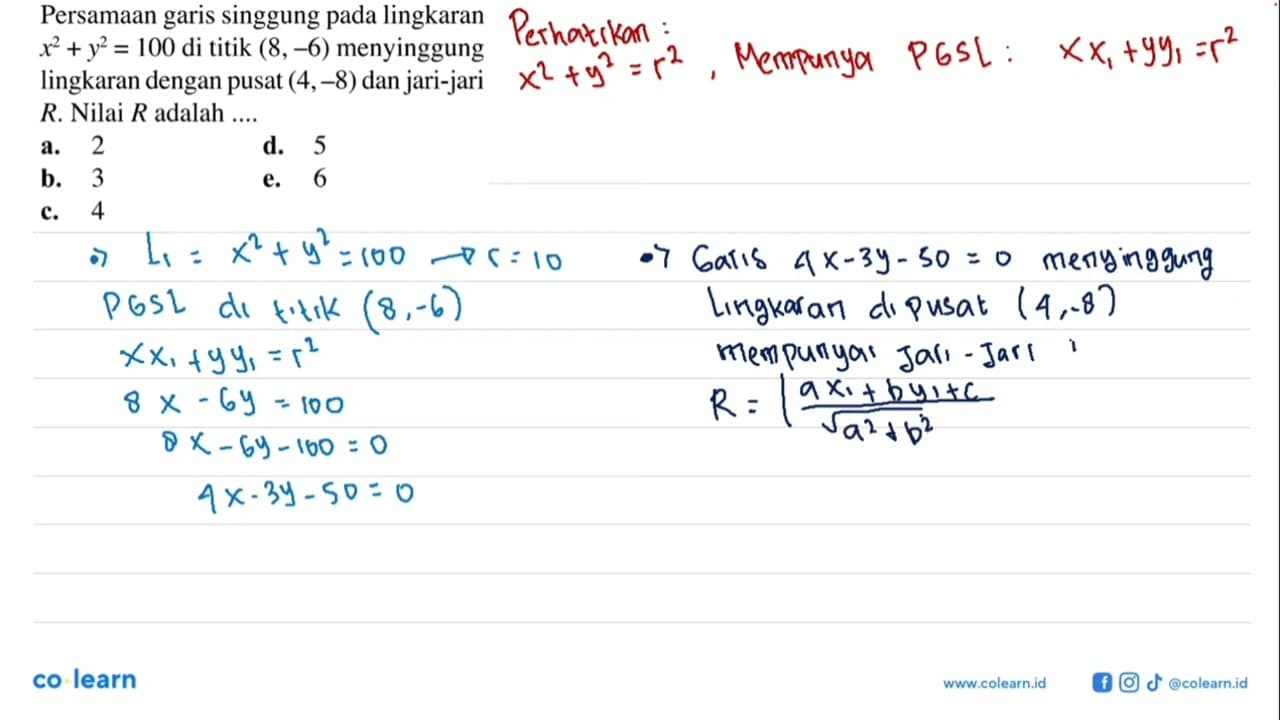 Persamaan garis singgung pada lingkaran
x² + y² = 100 di titik (8, –6) menyinggung
lingkaran dengan pusat (4, –8) dan jari-jari
R. Nilai R adalah ....
a. 2 d. 5
b. 3 e. 6
c. 4
Perhatikan :
x² + y² = r² , Mempunya PGSL : xx₁ + yy₁ = r²
•) L₁ = x² + y² = 100 → r = 10
PGSL di titik (8, -6)
xx₁ + yy₁ = r²
8x - 6y = 100
8x - 6y - 100 = 0
4x - 3y - 50 = 0
•) Garis 4x - 3y - 50 = 0 menyinggung
Lingkaran di pusat (4, -8)
mempunyai Jari - Jari :
R = | ax₁ + by₁ + c / √a² + b²
co learn
www.colearn.id @colearn.id